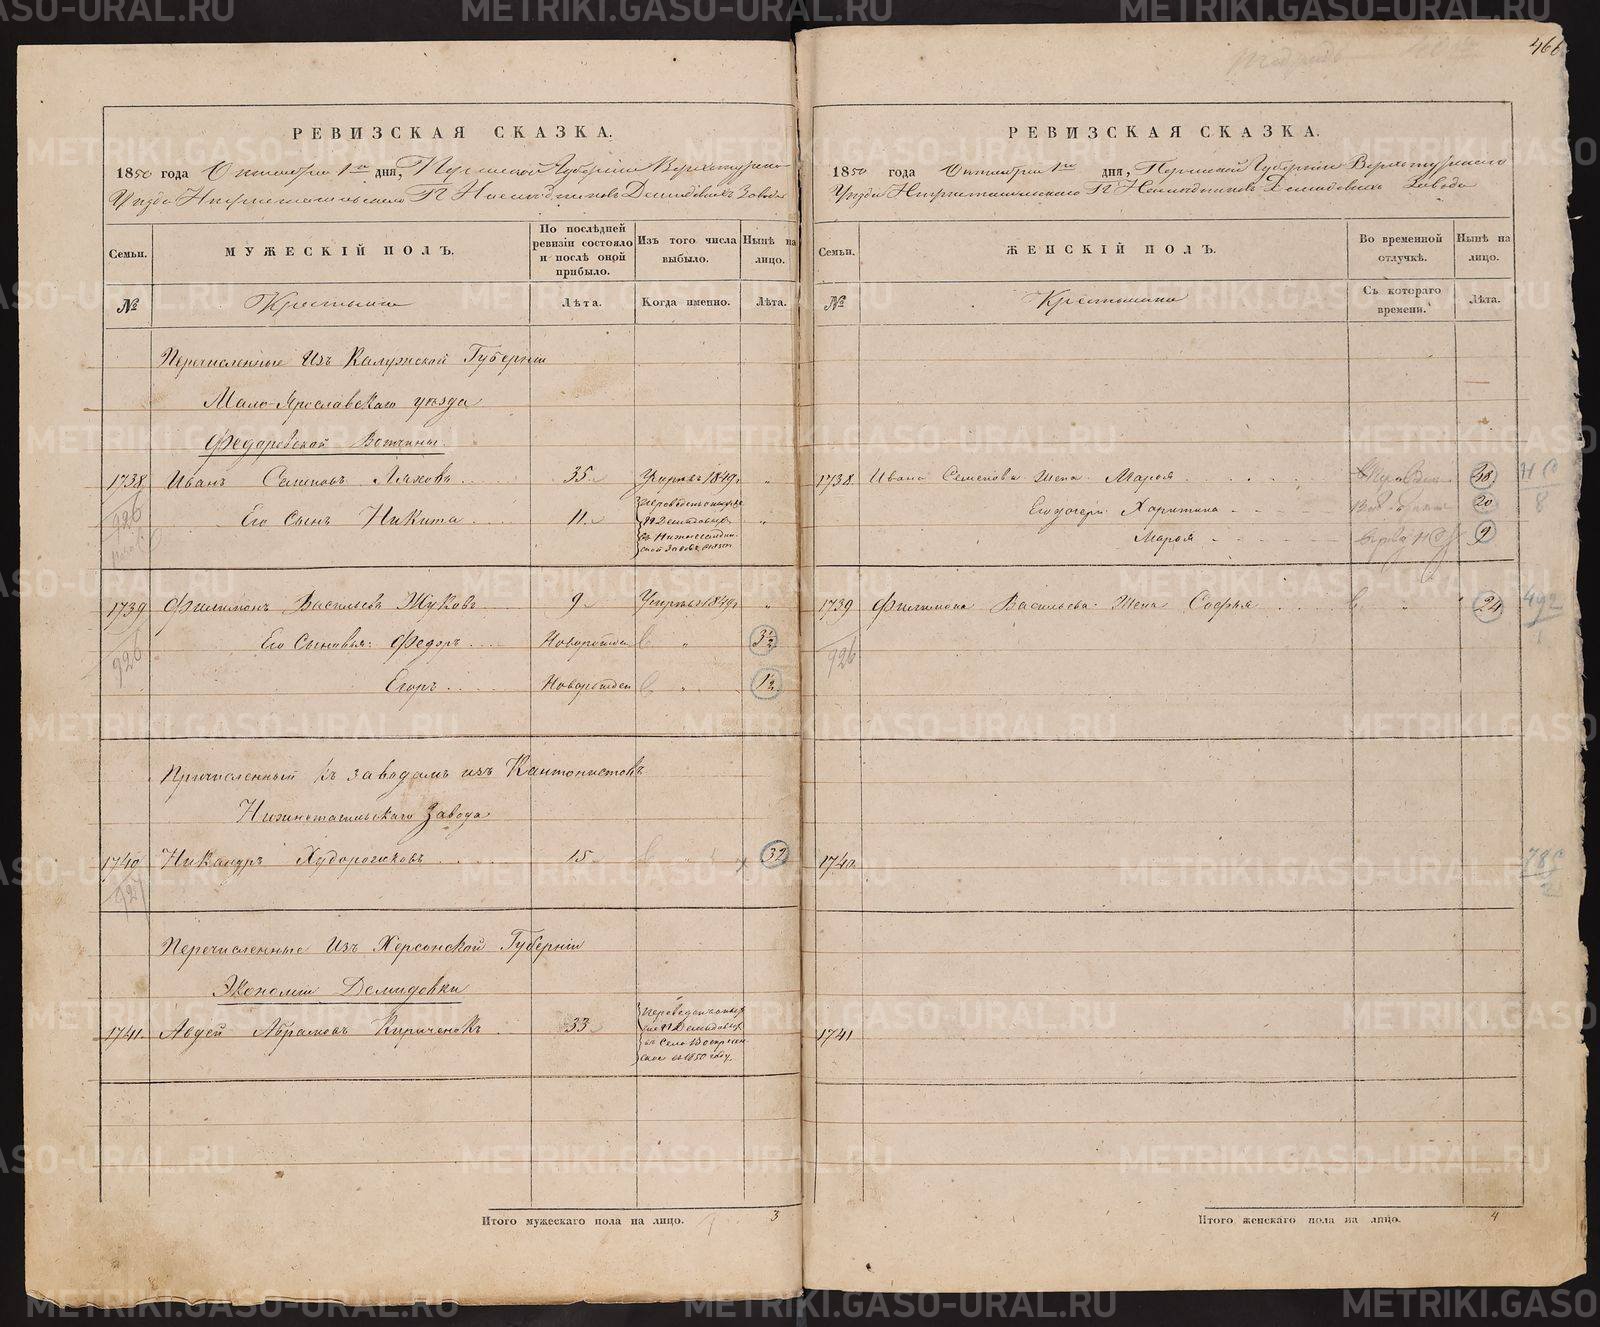 466
РЕВИЗСКАЯ СКАЗКА.
1850 года Октября 1го дня, Пермской Губерніи Верхотурскаго
Уѣзда Нижнетагильскаго Г Наслѣдниковъ Демидовыхъ Завода
Семьи.
МУЖЕСКІЙ ПОЛЪ.
По послѣдней ревизіи состояло и послѣ оной прибыло.
Изъ того числа выбыло.
Нынѣ на лицо.
№
Крестьяне
Лѣта.
Когда именно.
Лѣта.
Перечисленные Изъ Калужской Губерніи
Мало-Ярославскаго уѣзда
Федоровской Вотчины.
1738. Иванъ Семеновъ Ляховъ 35. Умеръ 1849.
926
Его Сынъ Никита 11.
Переведенъ
Г Демидовыхъ
въ Нижнесалдин-
ской Заводъ
1739 Филимонъ Васильевъ Жуковъ 9 Умеръ 1849. "
926
Его Сыновья: Федоръ Новорожден " 3½
Егоръ Новорожден " 1½
Причисленный къ заводамъ изъ Кантонистовъ
Нижнетагильскаго Завода
1740 Никандръ Худорожковъ 15 " 32
927
Перечисленные Изъ Херсонской Губерніи
Экономіи Демидовки
1741. Авдей Абрамовъ Кириченокъ 33
Переведенъ
Г Демидовыхъ
въ Село Воскресен-
ское въ 1850 году.
Итого мужескаго пола на лицо. 3
РЕВИЗСКАЯ СКАЗКА.
1850 года Октября 1го дня, Пермской Губерніи Верхотурскаго
Уѣзда Нижнетагильскаго Г Наслѣдниковъ Демидовыхъ Завода
Семьи.
ЖЕНСКІЙ ПОЛЪ.
Во временной отлучкѣ.
Нынѣ на лицо.
№
Крестьянки
Съ котораго времени.
Лѣта.
1738. Ивана Семенова жена Марья 38
Его дочери Харитина 20
Марья 9
1739 Филимона Васильева жена Софья " 24
926
492
1740.
1741
Итого женскаго пола на лицо. 4
METRIKI.GASO-URAL.RU